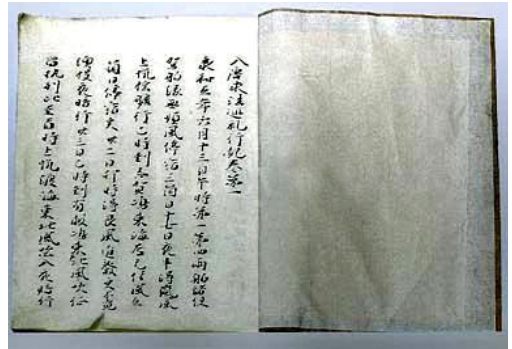 入唐求法巡礼行記卷第一
承和五年六月十三日午時第一第四両舶諸使
駕舶縁無順風停宿三箇日十七日夜半得嵐風
上帆揺艫行巳時到志賀嶋東海為无信風五
箇日停宿矣廿二日卯時得艮風進發更不覓
澳投夜暗行廿三日巳時到有救嶋東北風吹征
留執別比至酉時上帆渡海東北風吹入夜暗行